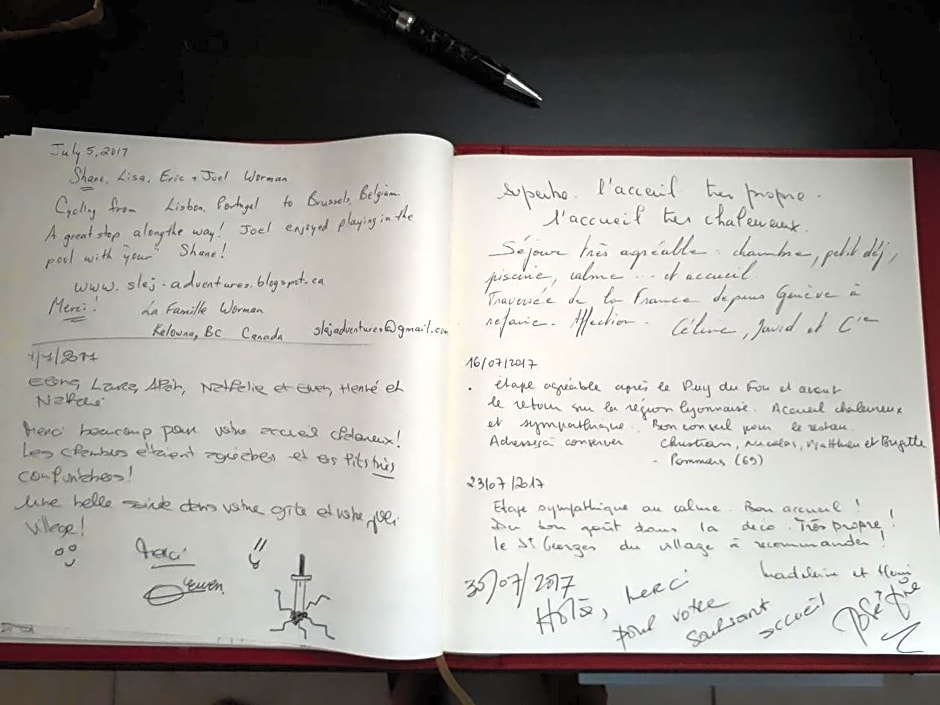 July 5, 2017
Shane, Lisa, Eric + Joel Worman
Cycling from Lisbon, Portugal to Brussels, Belgium.
A great stop along the way! Joel enjoyed playing in the
pool with "your" Shane!
www.slej-adventures.blogspot.ca
Merci! La Famille Worman
Kelowna, BC Canada slejadventures@gmail.com
et Ewen, Hervé et
Merci beaucoup pour votre accueil chaleureux!
Les chambres étaient et les lits très
confortables!
Une belle soirée dans votre gîte et votre
village!
Merci
Ewen.
Superbe. l'acceuil très propre.
l'accueil très chaleureux.
Séjour très agréable : chambre, petit déj,
piscine, calme ... et accueil.
Traversée de la France depuis Genève à
refaire. Affection. Céline, David et Cie
16/07/2017
. étape agréable après le Puy du Fou et avant
le retour sur la région lyonnaise. Accueil chaleureux
et sympathique. Bon conseil pour le restau.
Adresse à conserver Christian, Nicolas, Matthieu et Brigitte
- Pommiers (69)
23/07/2017
Etape sympathique au calme. Bon accueil!
Du bon goût dans la déco. Très propre!
le St Georges du village à recommander!
Madeleine et
30/07/2017
merci
pour votre
accueil